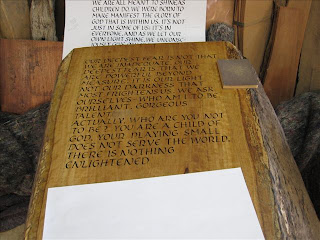 WE ARE ALL MEANT TO SHINE AS
CHILDREN DO. WE WERE BORN TO
MAKE MANIFEST THE GLORY OF
GOD THAT IS WITHIN US. IT'S NOT
JUST IN SOME OF US: IT'S IN
EVERYONE, AND AS WE LET OUR
OWN LIGHT SHINE, WE UNCONSC
OUR DEEPEST FEAR IS NOT THAT
WE ARE INADEQUATE. OUR
DEEPEST FEAR IS THAT WE
ARE POWERFUL BEYOND
MEASURE. IT IS OUR LIGHT
NOT OUR DARKNESS THAT
MOST FRIGHTENS US. WE ASK
OURSELVES: WHO AM I TO BE
BRILLIANT, GORGEOUS
TALENT
ACTUALLY, WHO ARE YOU NOT
TO BE? YOU ARE A CHILD OF
GOD. YOUR PLAYING SMALL
DOES NOT SERVE THE WORLD.
THERE IS NOTHING
ENLIGHTENED